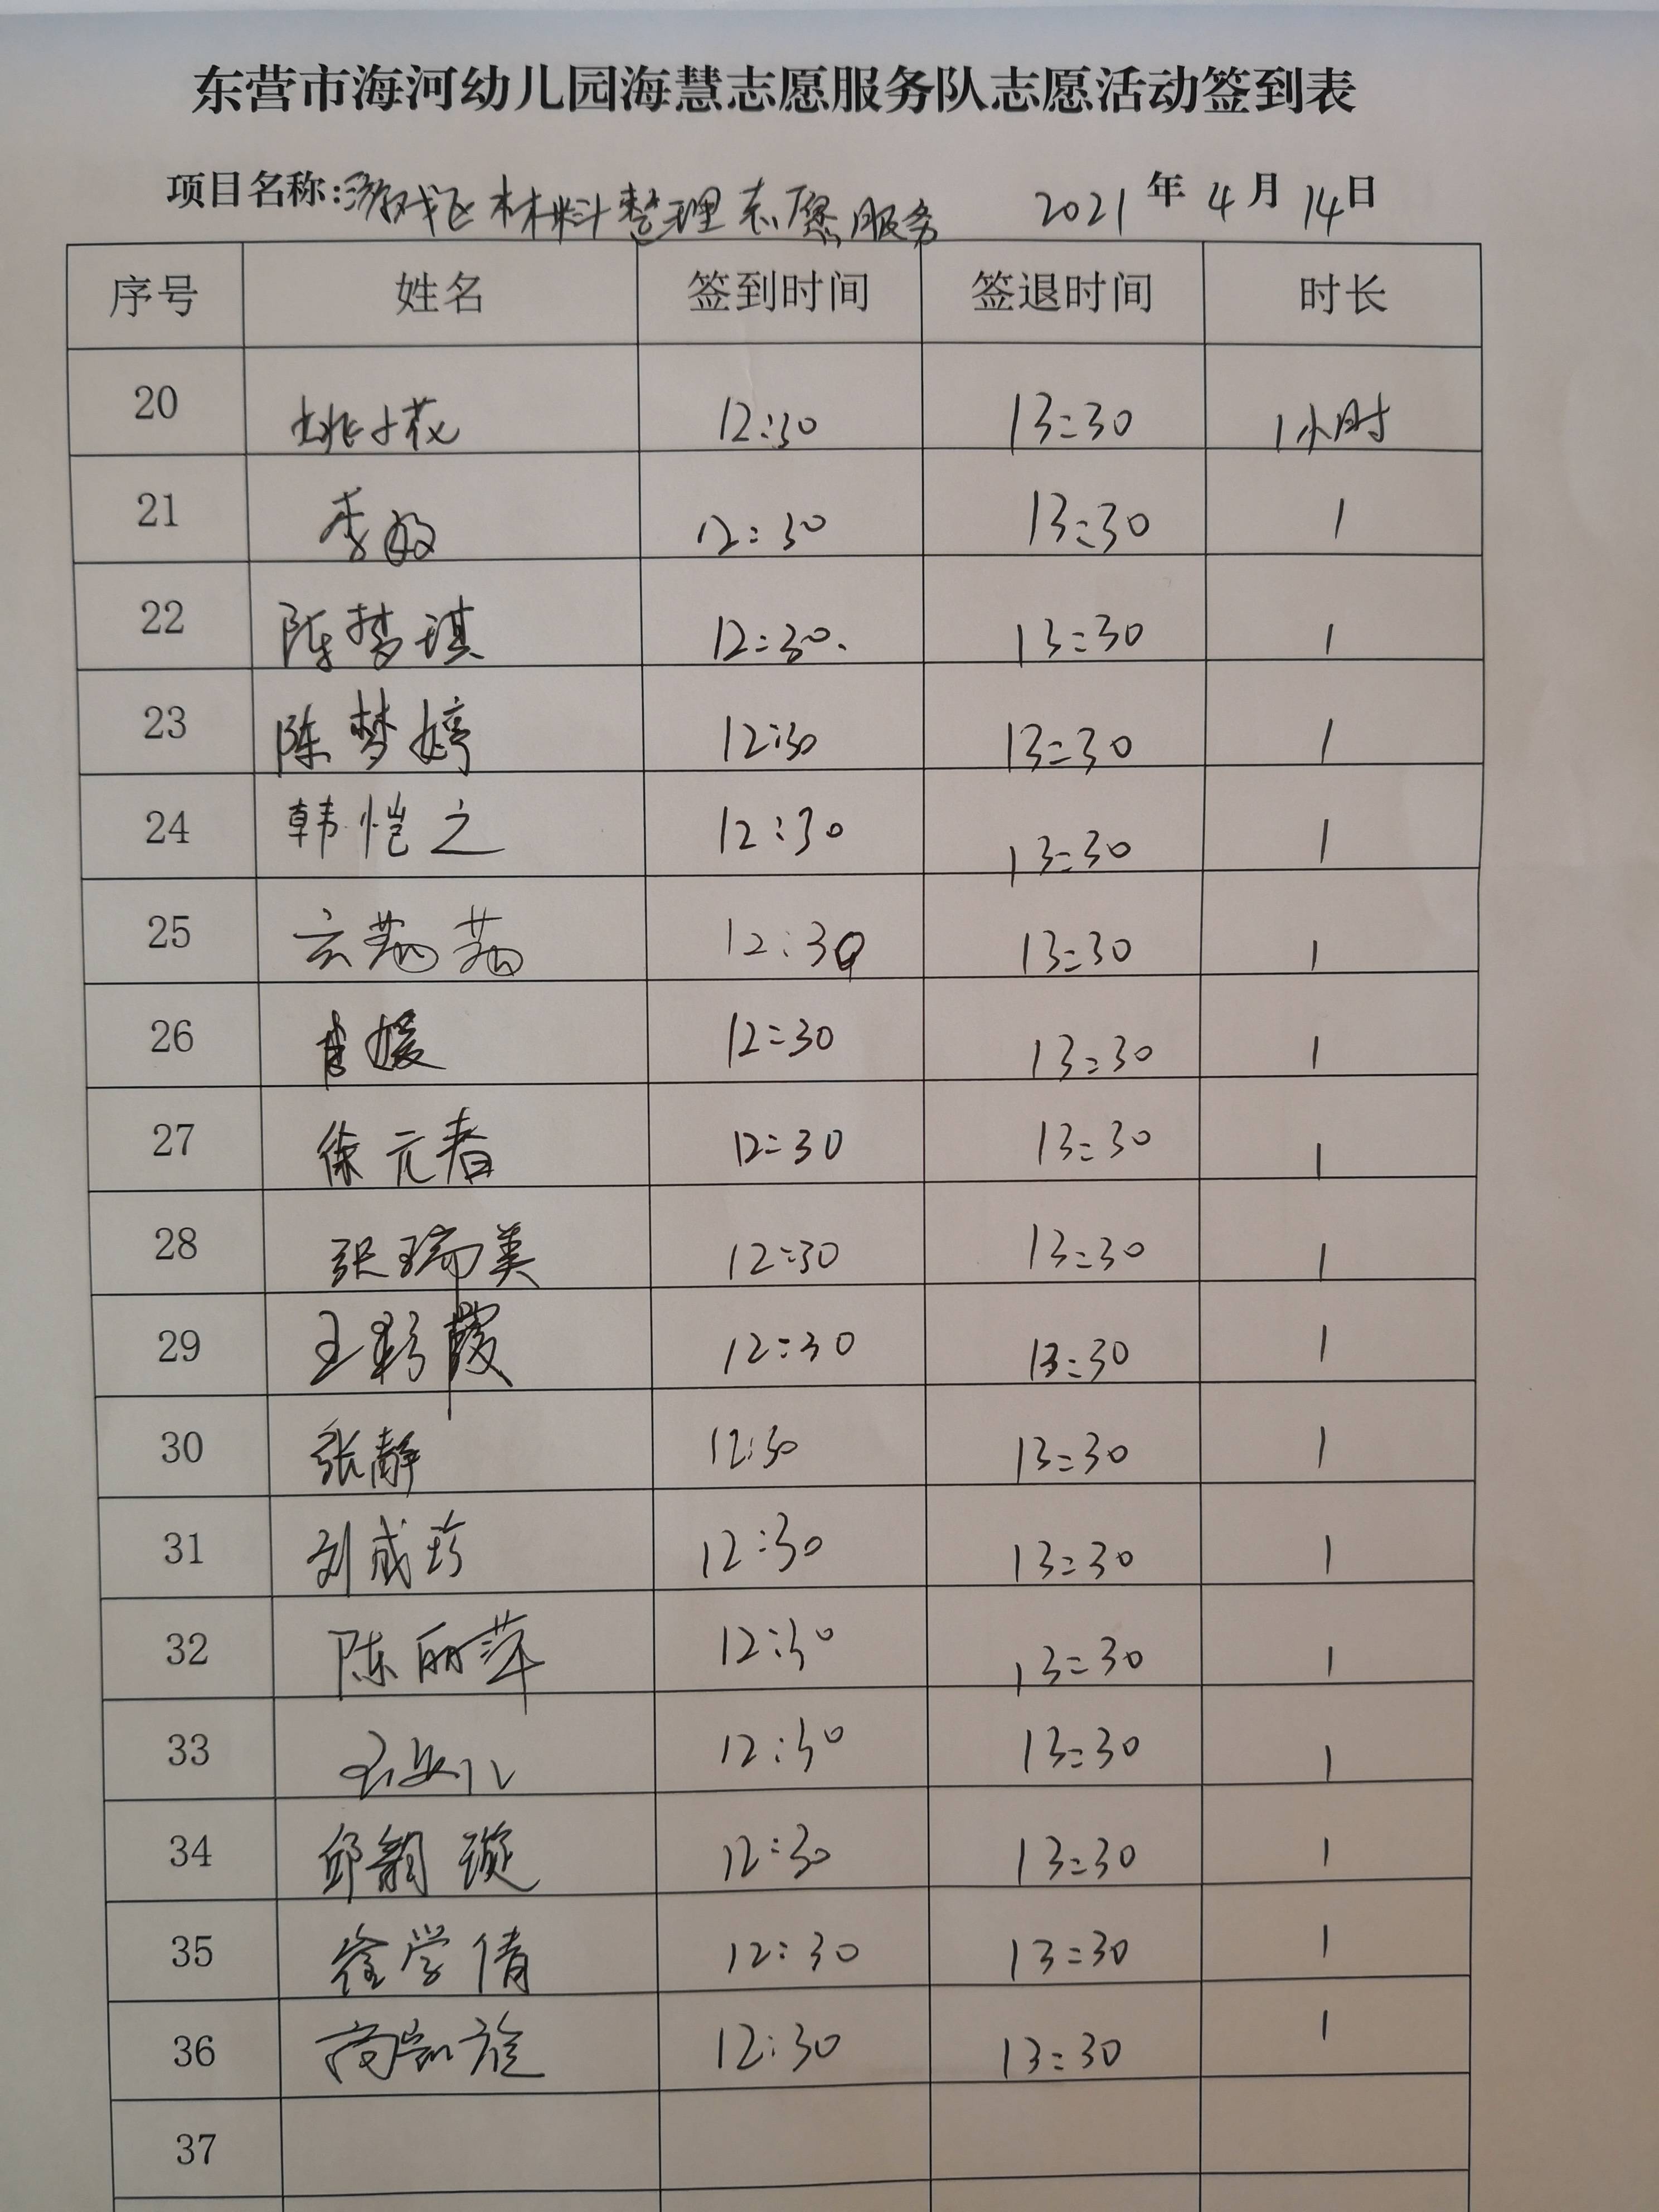 东营市海河幼儿园海慧志愿服务队志愿活动签到表
项目名称:游戏区材料整理志愿服务 2021年4月14日
序号 姓名 签到时间 签退时间 时长
20 姚小花 12:30 13:30 1小时
21 李敏 12:30 13:30 1
22 陈梦琪 12:30. 13:30 1
23 陈梦婷 12:30 13:30 1
24 韩恺之 12:30 13:30 1
25 12:30 13:30 1
26 肖媛 12:30 13:30 1
27 徐元春 12:30 13:30 1
28 张瑞美 12:30 13:30 1
29 王彩霞 12:30 13:30 1
30 张静 12:30 13:30 1
31 刘成珍 12:30 13:30 1
32 陈丽萍 12:30 13:30 1
33 12:30 13:30 1
34 邱韵璇 12:30 13:30 1
35 崔学倩 12:30 13:30 1
36 商凯旋 12:30 13:30 1
37